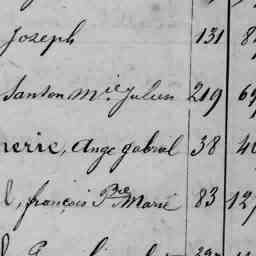 Joseph 131
Santon Mie Julien 219
nerie, Ange gabriel 38
françois Pre Marie 83